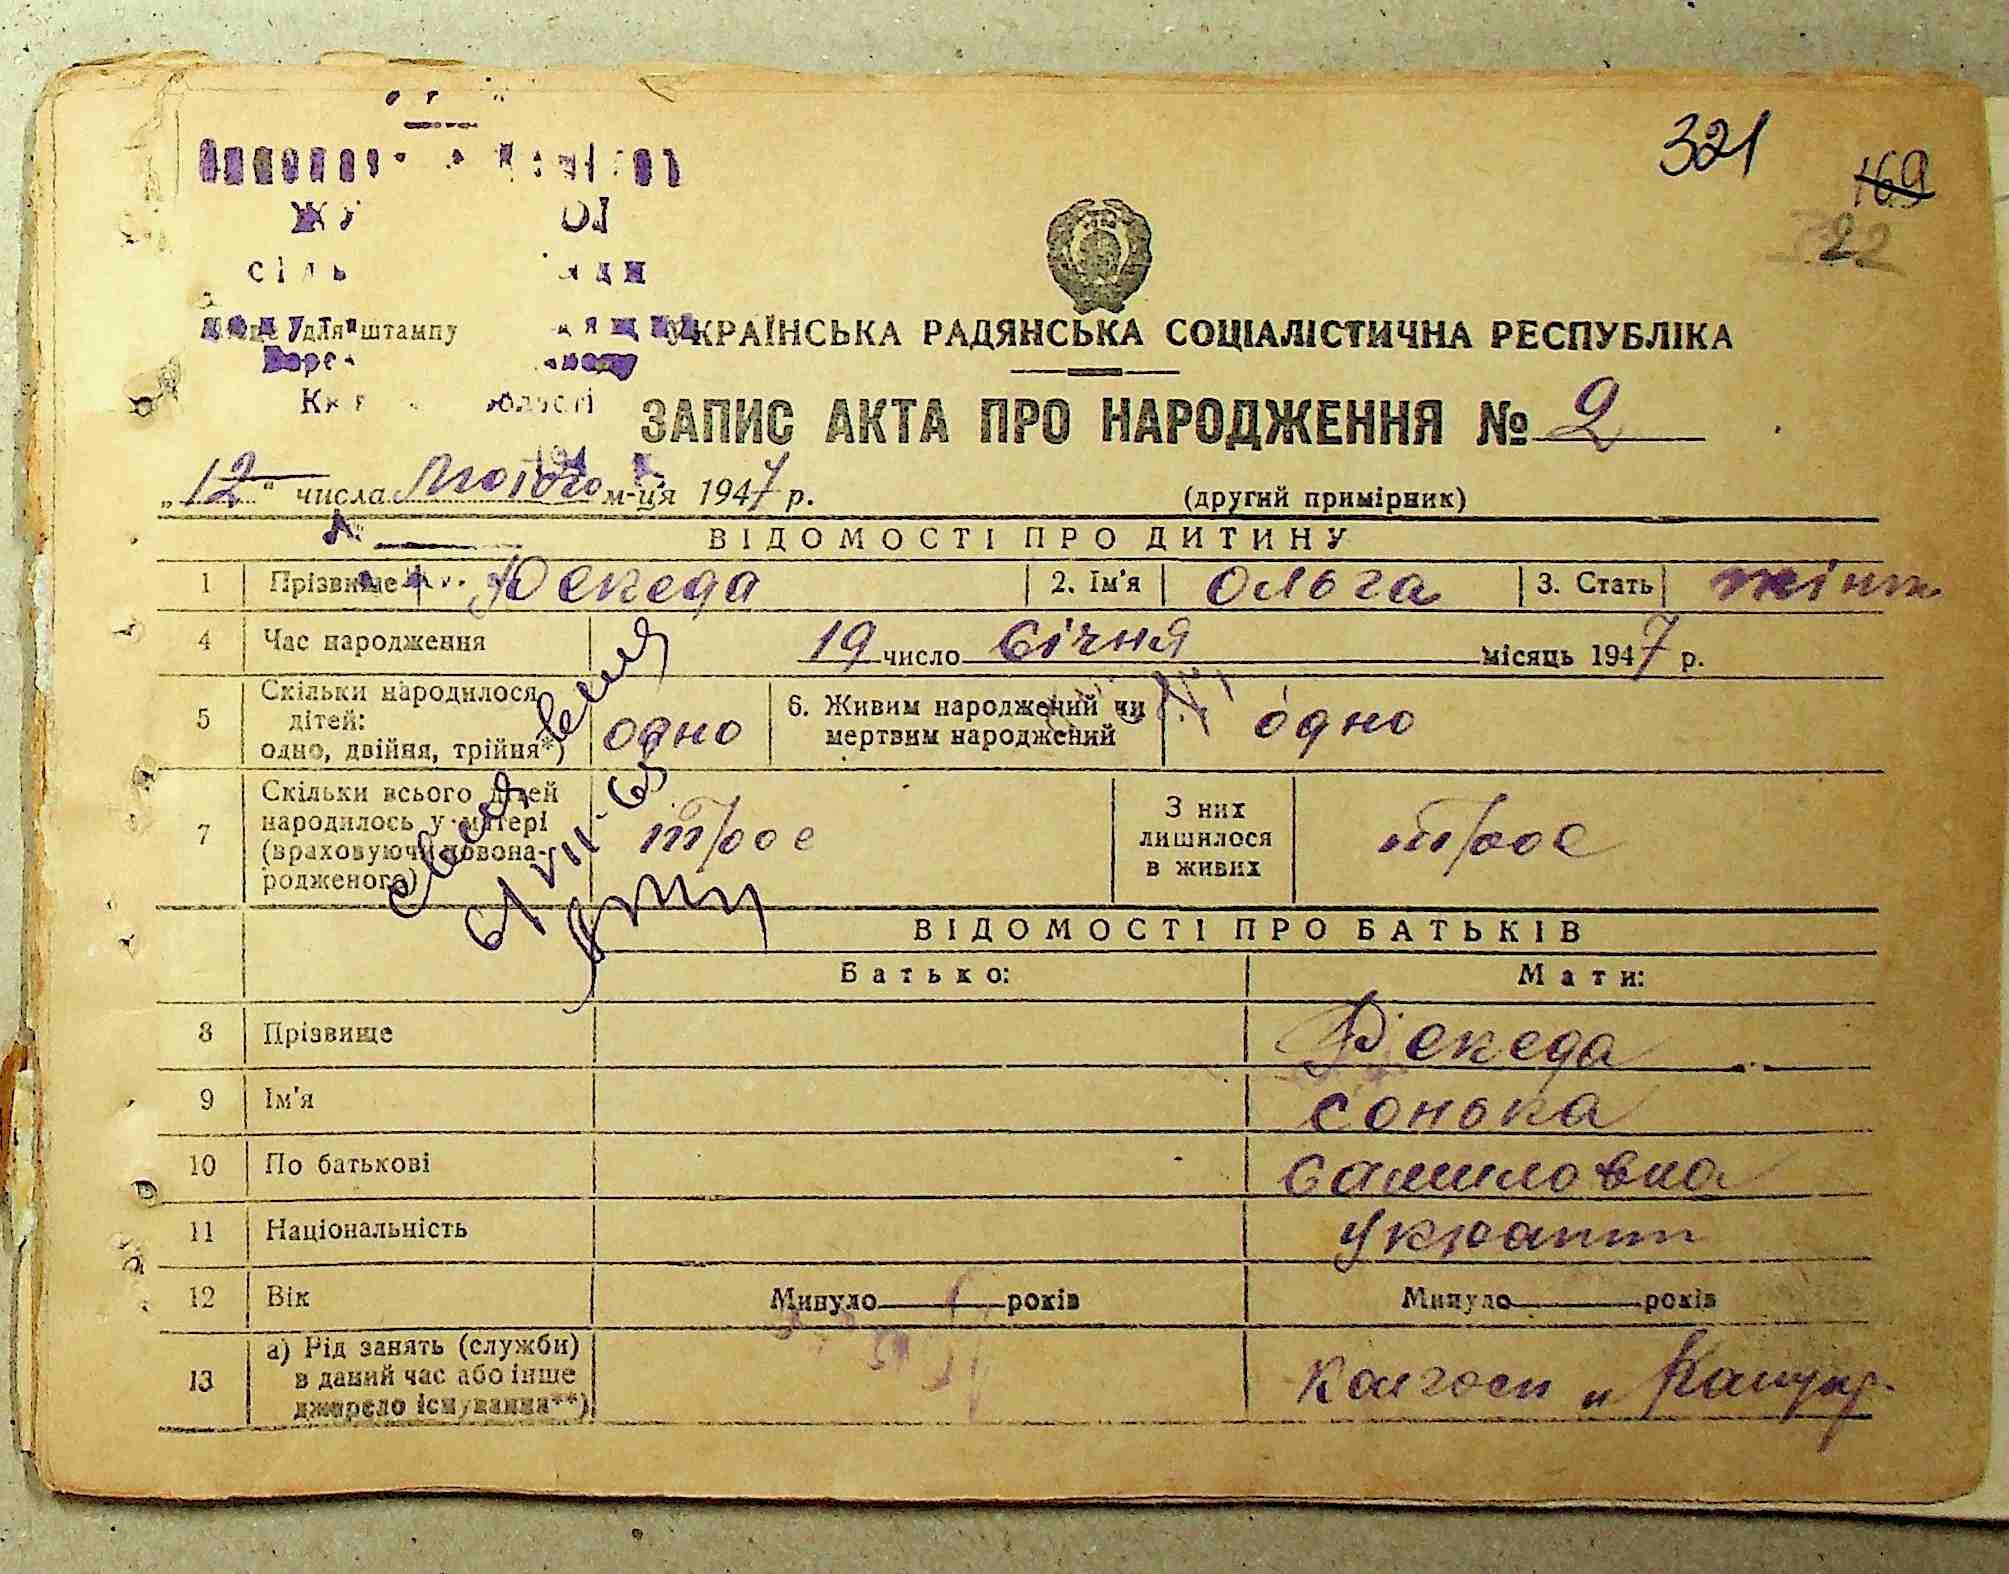 321
169
322
Місце для штампу
УКРАЇНСЬКА РАДЯНСЬКА СОЦІАЛІСТИЧНА РЕСПУБЛІКА
ЗАПИС АКТА ПРО НАРОДЖЕННЯ № 2
„12“ числа Лютого м-ця 1947 р.
(другий примірник)
ВІДОМОСТІ ПРО ДИТИНУ
1 Прізвище Рекеда 2. Ім'я Ольга 3. Стать жіноч
4 Час народження 19 число Січня місяць 1947 р.
5 Скільки народилося дітей: одно, двійня, трійня*) одно 6. Живим народжений чи мертвим народжений одно
7 Скільки всього дітей народилось у матері (враховуючи новонародженого) троє З них лишилося в живих троє
ВІДОМОСТІ ПРО БАТЬКІВ
Батько: Мати:
8 Прізвище Рекеда
9 Ім'я Сонька
10 По батькові Самиловна
11 Національність
12 Вік Минуло років Минуло років
13 а) Рід занять (служби) в даний час або інше джерело існування**) Колгосп